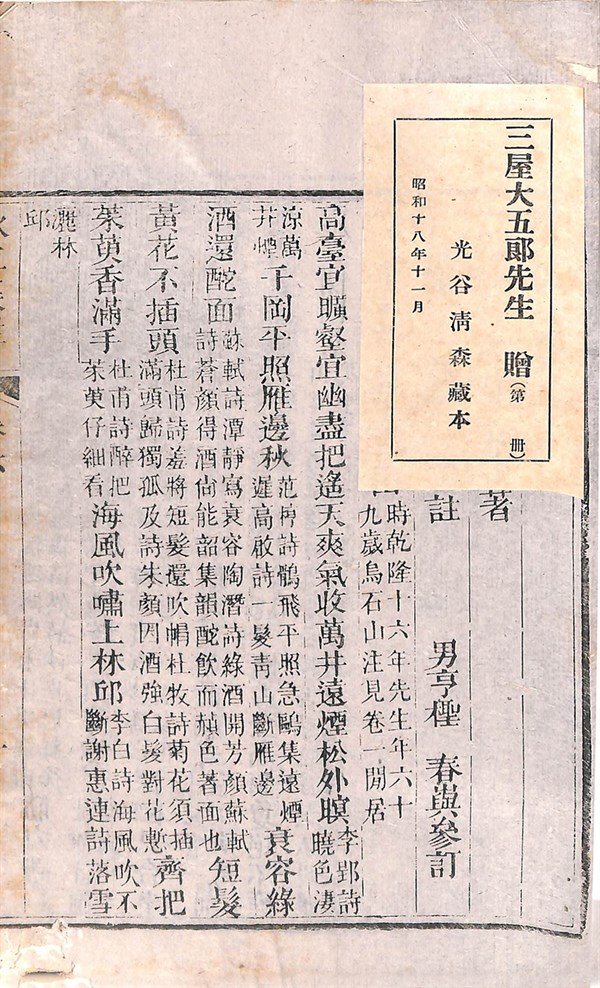 三屋大五郞先生 贈(第 册)
光谷淸森藏本
昭和十八年十一月
著
註 男亨 春與參訂
時乾隆十六年先生年六十
九歲烏石山注見卷一閒居
高臺宜曠壑宜幽盡把遙天爽氣收萬井遠煙松外暝李郢詩曉色淒
涼萬井煙千岡平照雁邊秋范梈詩鶻飛平照急鷗集遠煙遲高啟詩一髮靑山斷雁邊衰容綠
酒還酡面蘇軾詩潭靜寫衰容陶潛詩綠酒開芳顏蘇軾詩蒼顏得酒尙能韶集韻酡飮而赬色著面也短髮
黃花不插頭杜甫詩羞將短髮還吹帽杜牧詩菊花須插滿頭歸獨孤及詩朱顏因酒強白髮對花慙齊把
茱萸香滿手杜甫詩醉把茱萸仔細看海風吹嘯上林邱李白詩海風吹不斷謝惠連詩落雪
灑林邱